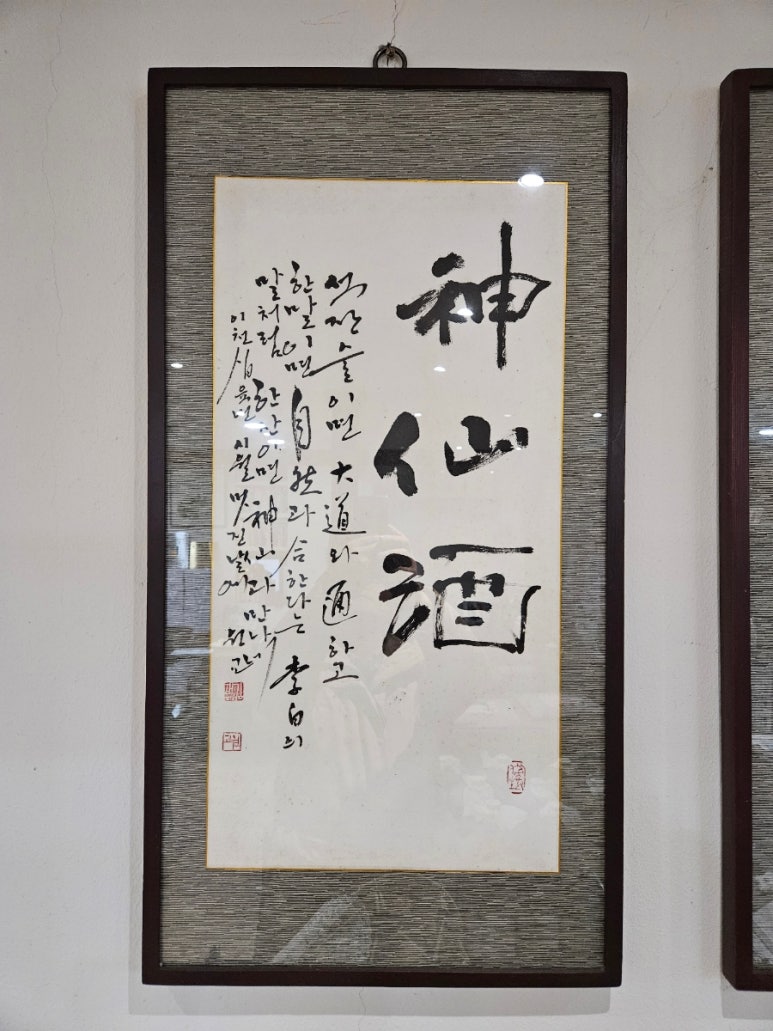 神仙酒
석잔술이면 大道와 通하고
한말이면 自然과 合한다는 李白의
말처럼 한잔이면 神仙과
이천십육년 시월 멋진날에